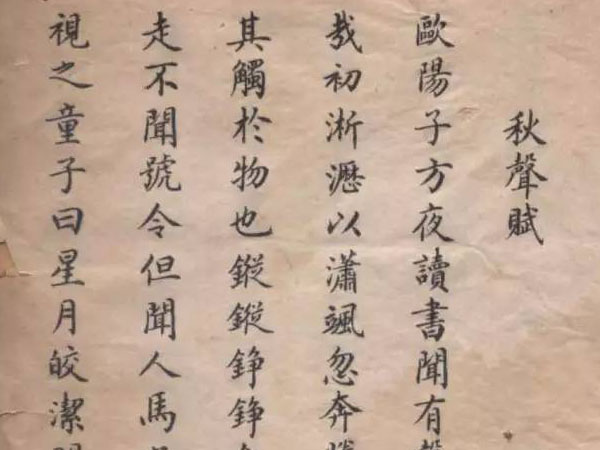 秋聲賦
歐陽子方夜讀書聞有
哉初淅瀝以瀟颯忽奔
其觸於物也鏦鏦錚錚
走不聞號令但聞人馬
視之童子曰星月皎潔